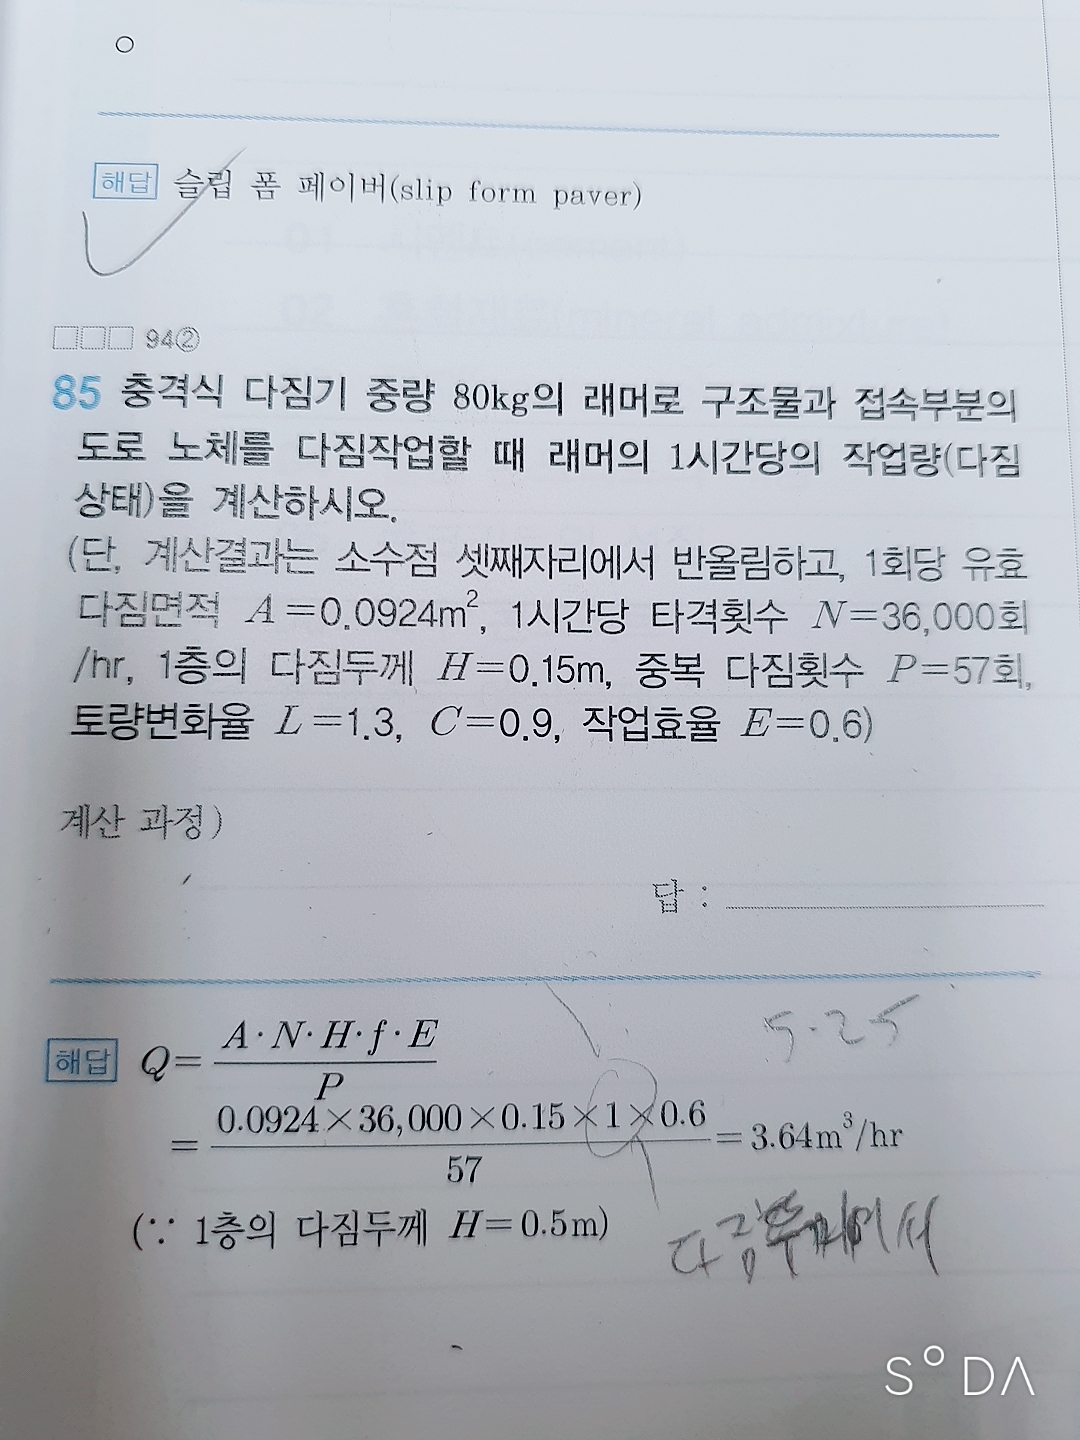 해답 슬립 폼 페이버(slip form paver)
94②
85 충격식 다짐기 중량 80kg의 래머로 구조물과 접속부분의
도로 노체를 다짐작업할 때 래머의 1시간당의 작업량(다짐
상태)을 계산하시오.
(단, 계산결과는 소수점 셋째자리에서 반올림하고, 1회당 유효
다짐면적 A=0.0924m², 1시간당 타격횟수 N=36,000회
/hr, 1층의 다짐두께 H=0.15m, 중복 다짐횟수 P=57회,
토량변화율 L=1.3, C=0.9, 작업효율 E=0.6)
계산 과정)
답 :
5.25
해답 Q= A·N·H·f·E
P
= 0.0924×36,000×0.15×1×0.6 =3.64m³/hr
57
(∵ 1층의 다짐두께 H=0.5m)
S°DA